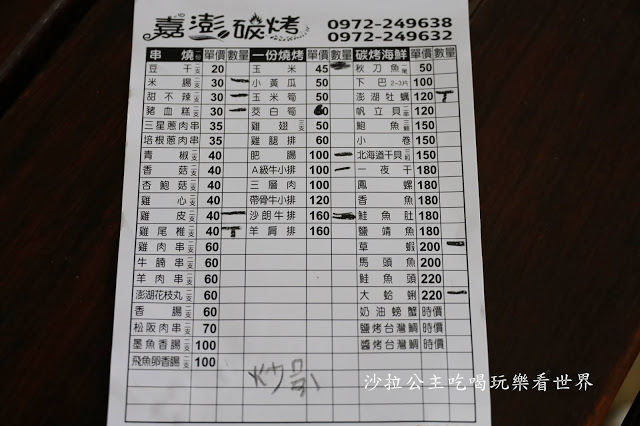 嘉澎碳烤 0972-249638
0972-249632
串燒 單價 數量 一份燒烤 單價 數量 碳烤海鮮 單價 數量
豆干二支 20 玉米 45 秋刀魚尾 50
米腸二支 30 小黃瓜 50 下巴2-3片 100
甜不辣二支 30 玉米筍 50 澎湖牡蠣 120
豬血糕二支 30 茭白筍 60 帆立貝二串 120
三星蔥肉串 35 雞翅三支 50 鮑魚三顆 150
培根蔥肉串 35 雞腿排 60 小卷 150
青椒二支 40 肥腸 100 北海道干貝三顆 150
香菇二支 40 A級牛小排 100 一夜干 180
杏鮑菇二支 40 三層肉 100 鳳螺 180
雞心二支 40 帶骨牛小排 120 香魚 180
雞皮二支 40 沙朗牛排 160 鮭魚肚 180
雞尾椎二支 40 羊肩排 160 鹽靖魚 180
雞肉串二支 60 草蝦 200
牛腩串二支 60 馬頭魚 200
羊肉串二支 60 鮭魚頭 220
澎湖花枝丸二支 60 大蛤蜊 220
香腸二支 60 奶油螃蟹 時價
松阪肉串二支 70 鹽烤台灣鯛 時價
墨魚香腸二支 100 醬烤台灣鯛 時價
飛魚卵香腸二支 100
沙拉公主吃喝玩樂看世界